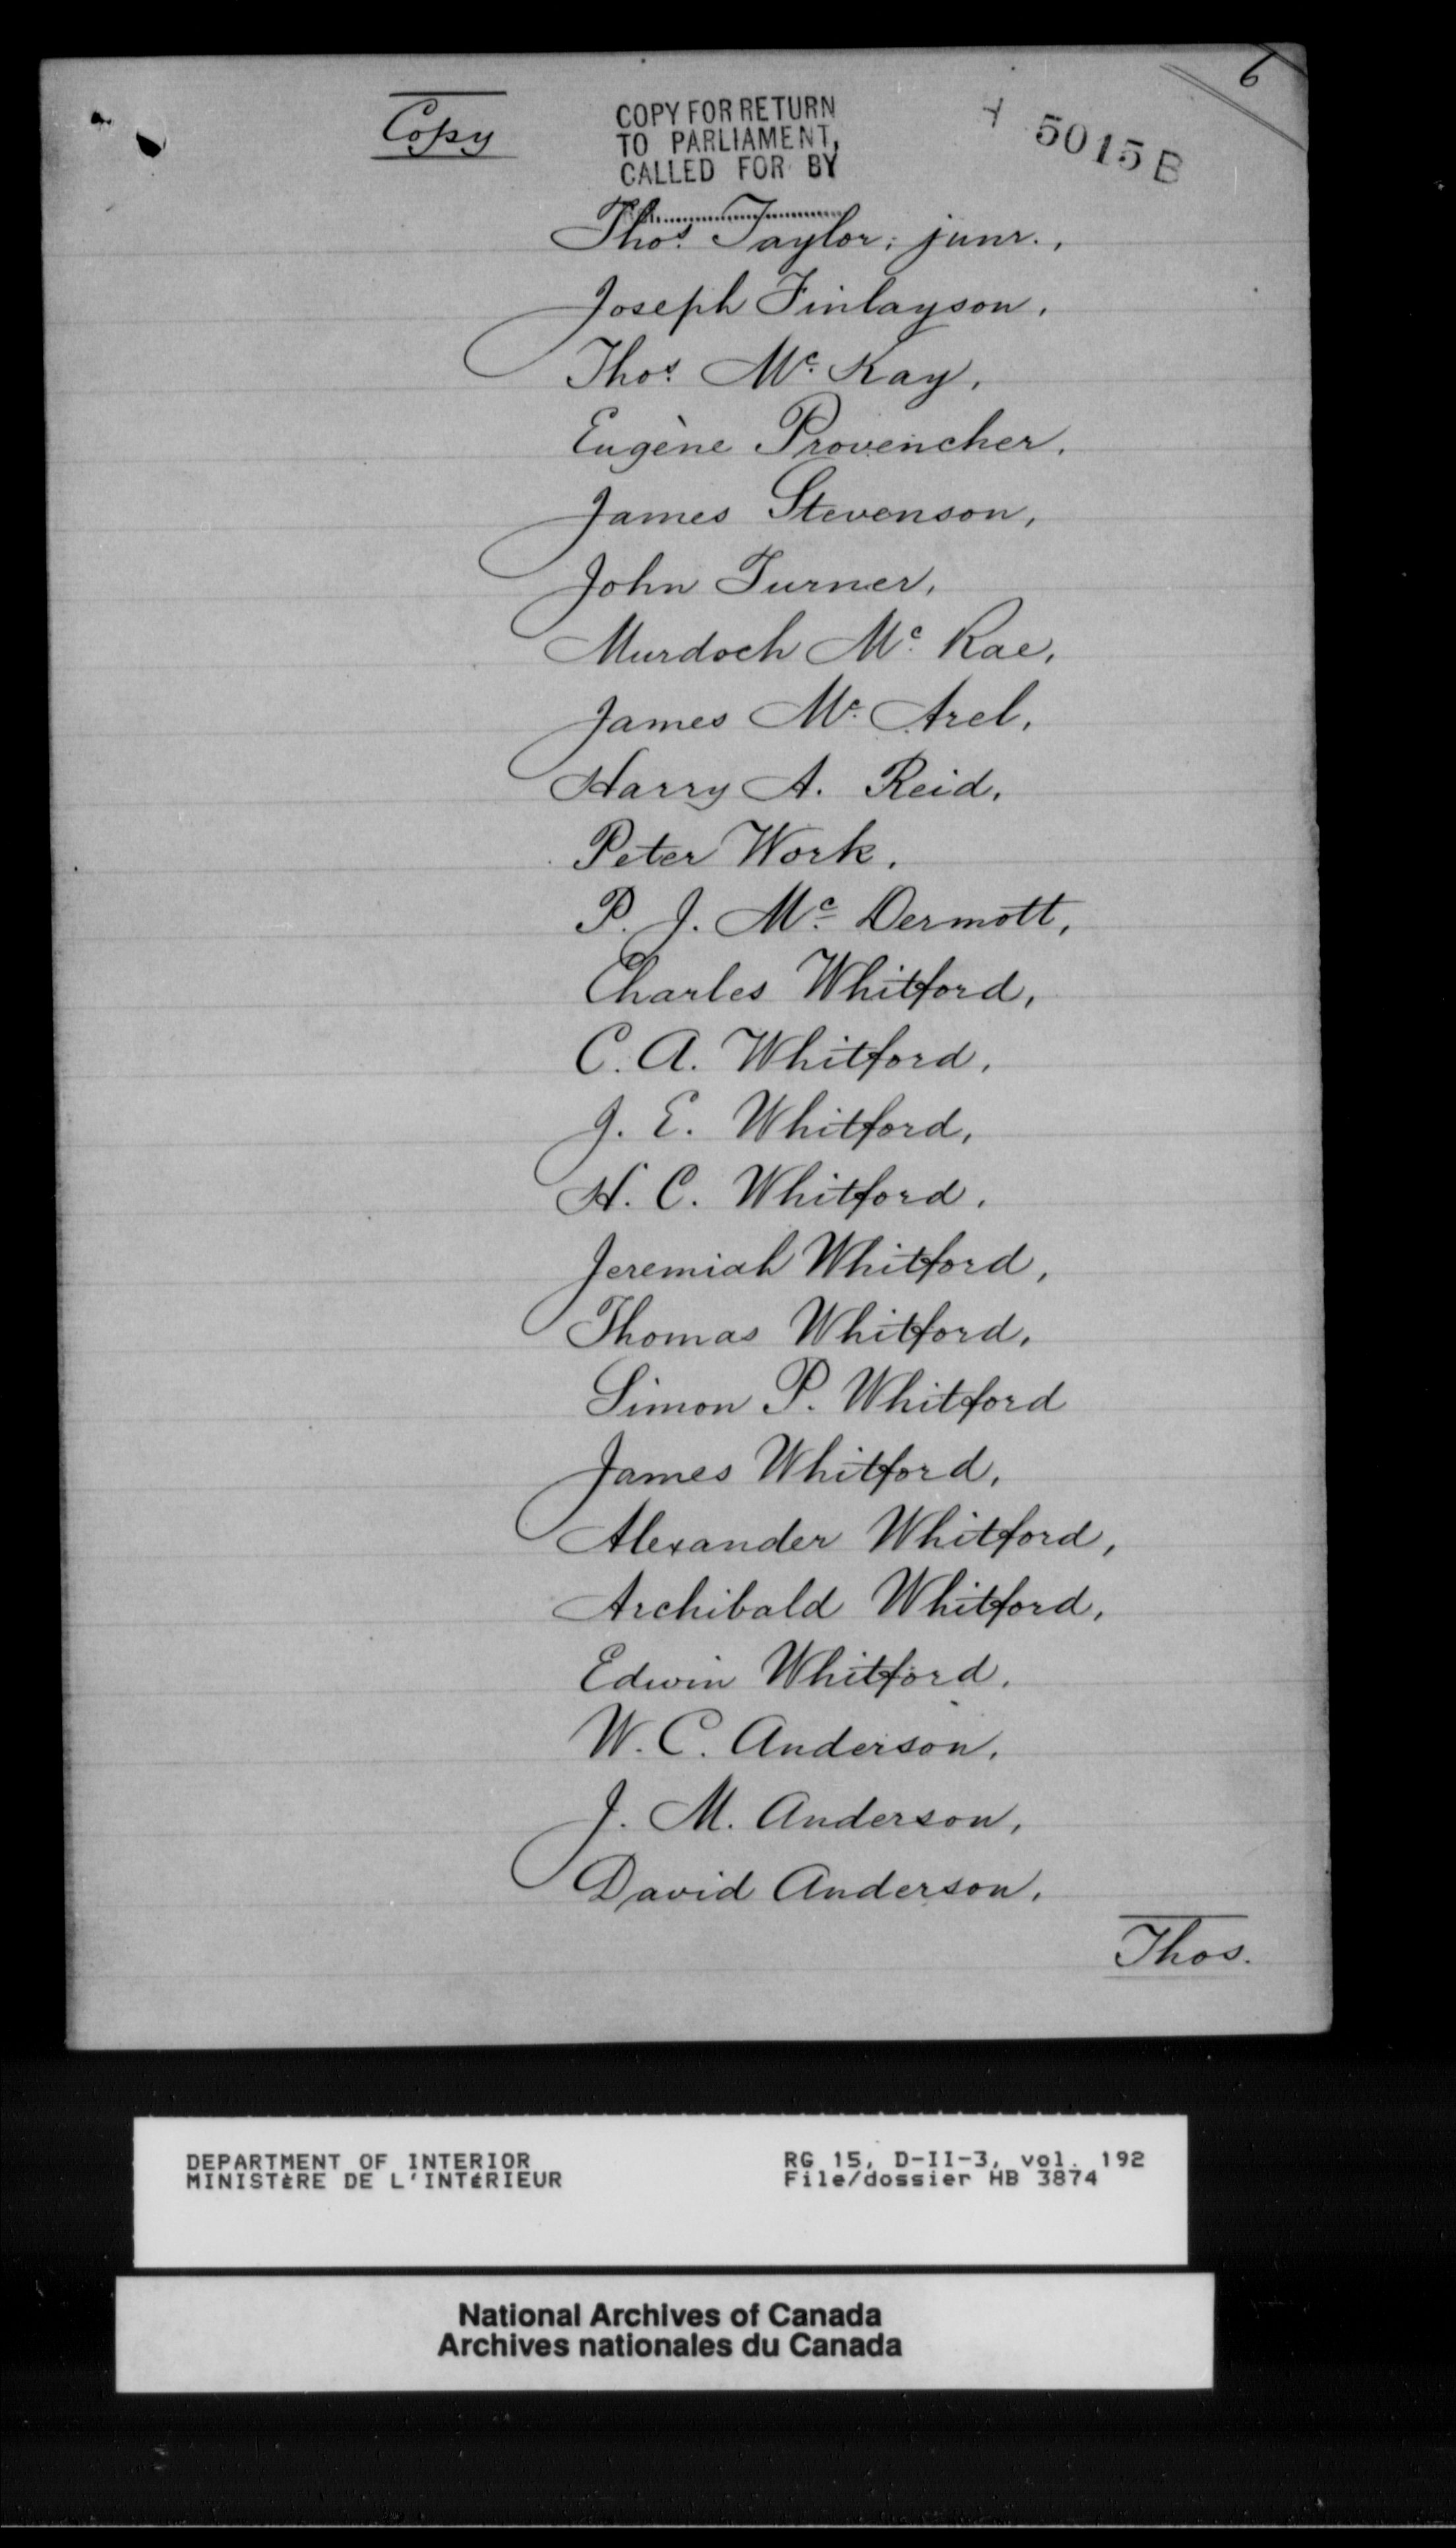 6
Copy
COPY FOR RETURN
TO PARLIAMENT,
CALLED FOR BY
5015 B
Thos. Taylor, junr.,
Joseph Finlayson,
Thos. Mc. Kay,
Eugène Provencher,
James Stevenson,
John Turner,
Murdoch Mc. Rae,
James Mc. Arel,
Harry A. Reid,
Peter Work,
P. J. Mc. Dermott,
Charles Whitford,
C. A. Whitford,
J. E. Whitford,
H. C. Whitford,
Jeremiah Whitford,
Thomas Whitford,
Simon P. Whitford
James Whitford,
Alexander Whitford,
Archibald Whitford,
Edwin Whitford,
W. C. Anderson,
J. M. Anderson,
David Anderson,
Thos.
DEPARTMENT OF INTERIOR
MINISTÈRE DE L'INTÉRIEUR
RG 15, D-II-3, vol. 192
File/dossier HB 3874
National Archives of Canada
Archives nationales du Canada